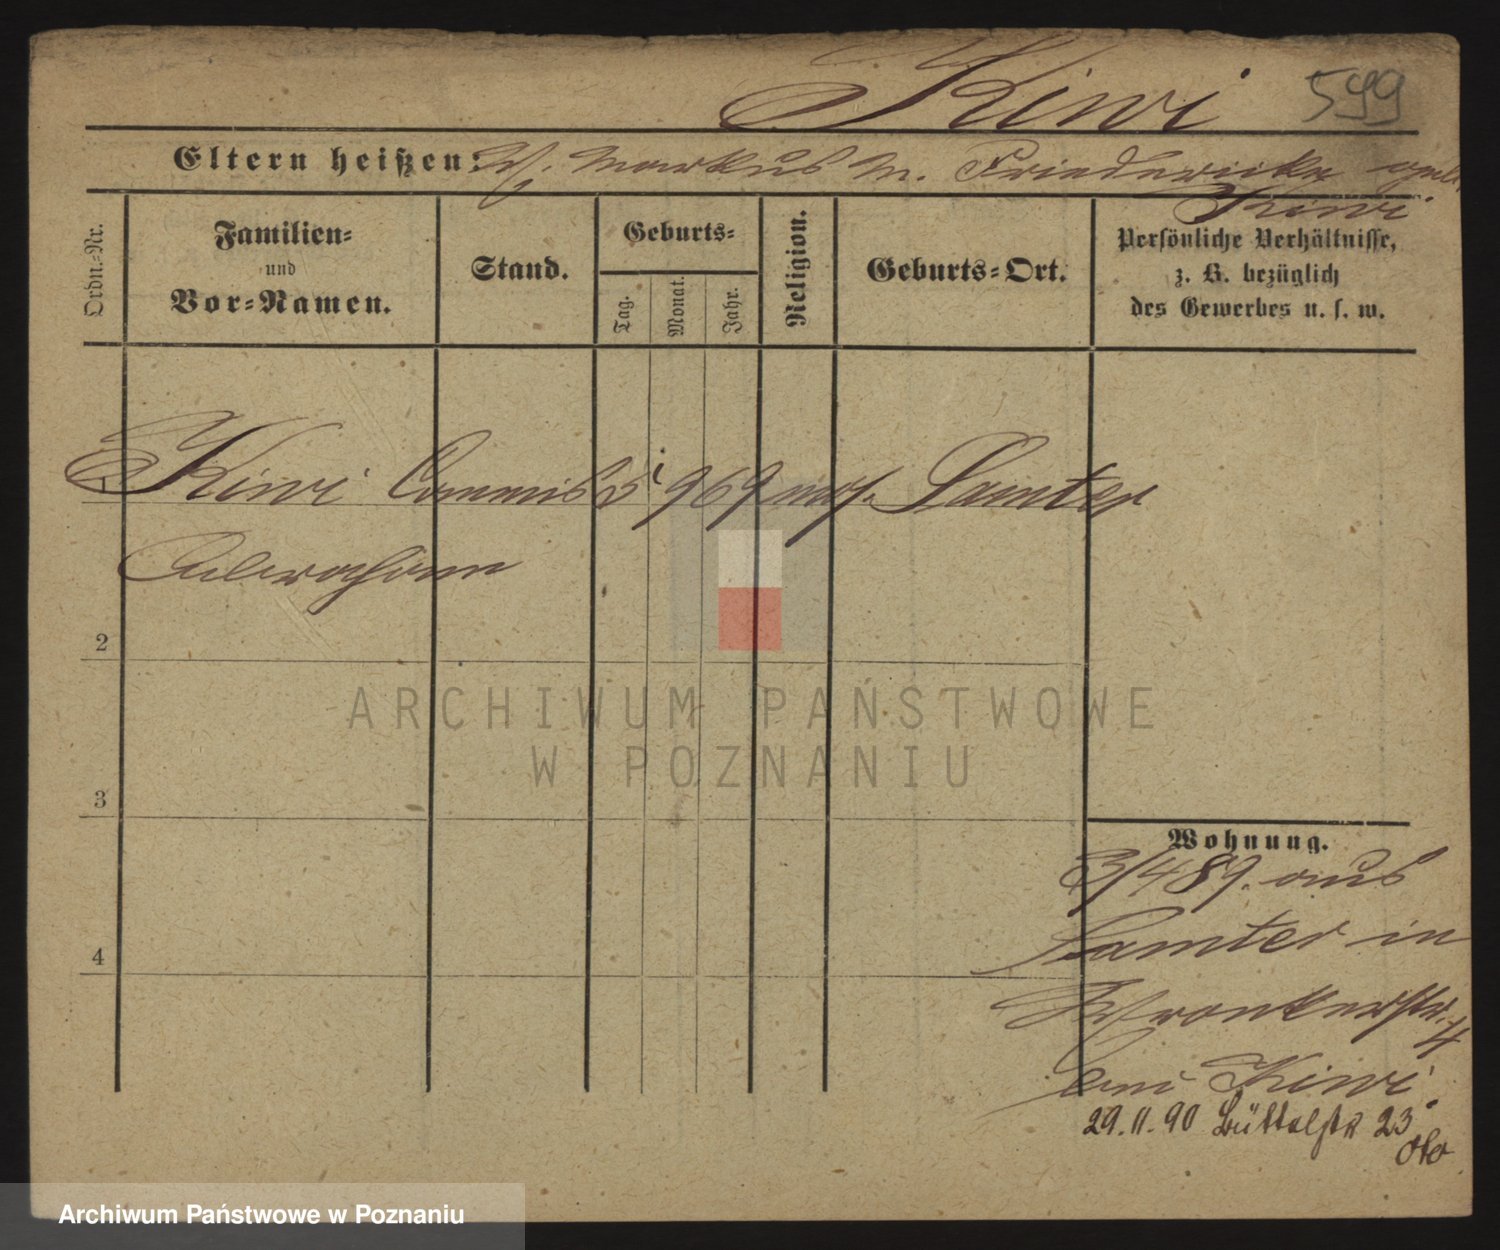 Kiwi 599
Eltern heißen: V. Markus M. Friedericke geb.
Kiwi
Ordn.-Nr.
Familien-
und
Vor-Namen.
Stand.
Geburts-
Tag.
Monat.
Jahr.
Religion.
Geburts-Ort.
Persönliche Verhältnisse,
z. B. bezüglich
des Gewerbes u. s. w.
1 Kiwi Commis 5 9 69 mos. Samter
Abraham
2
3
4
Wohnung.
3/4 89. aus
Samter in
Wronkerstr. 4
bei Kiwi.
29.11.90 Büttelstr 23
ARCHIWUM PAŃSTWOWE
W POZNANIU
Archiwum Państwowe w Poznaniu